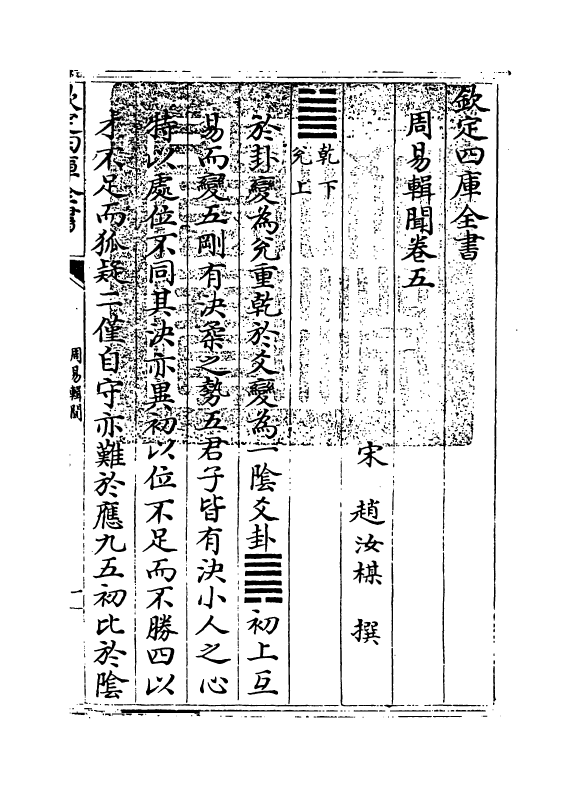 欽定四庫全書
周易輯聞卷五
宋 趙汝楳 撰
乾下
兌上
於卦變為兌重乾於爻變為一陰爻卦
初上互
易而變五剛有決柔之勢五君子皆有決小人之心
特以處位不同其決亦異初以位不足而不勝四以
才不足而狐疑二僅自守亦難於應九五初比於陰
欽定四庫全書
周易輯聞
一